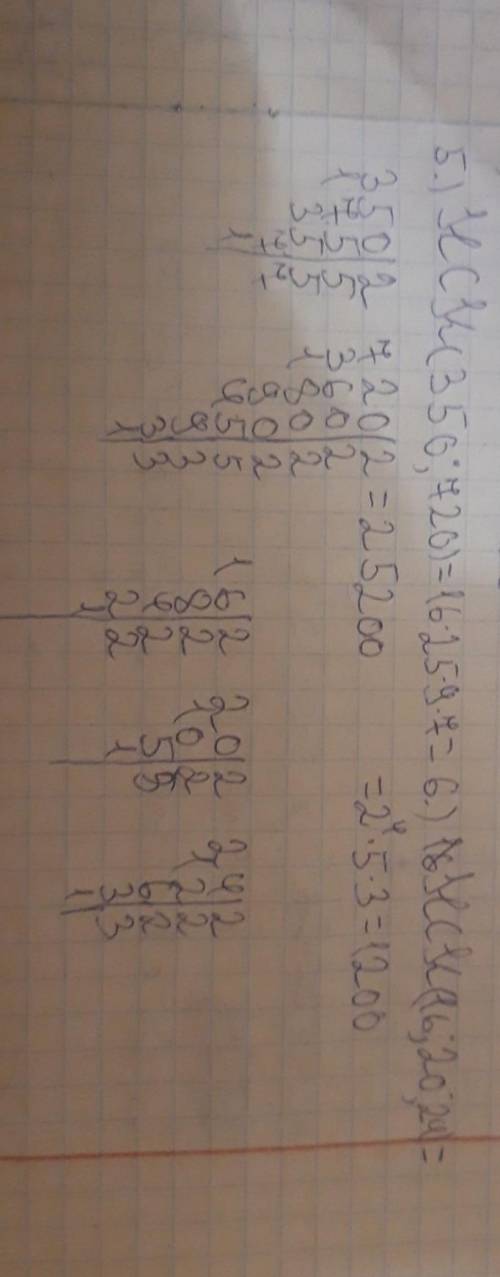 5.) НСК(350;720)=16·25·9·7= 6.) НСК(16;20;24)=
350|2 720|2 =25200 =2⁴·5·3=1200
175|5 360|2
35|5 180|2
7|7 90|2
1| 45|5 16|2 20|2 24|2
9|3 8|2 10|2 12|2
3|3 4|2 5|5 6|2
1| 2|2 1| 3|3
1| 1|